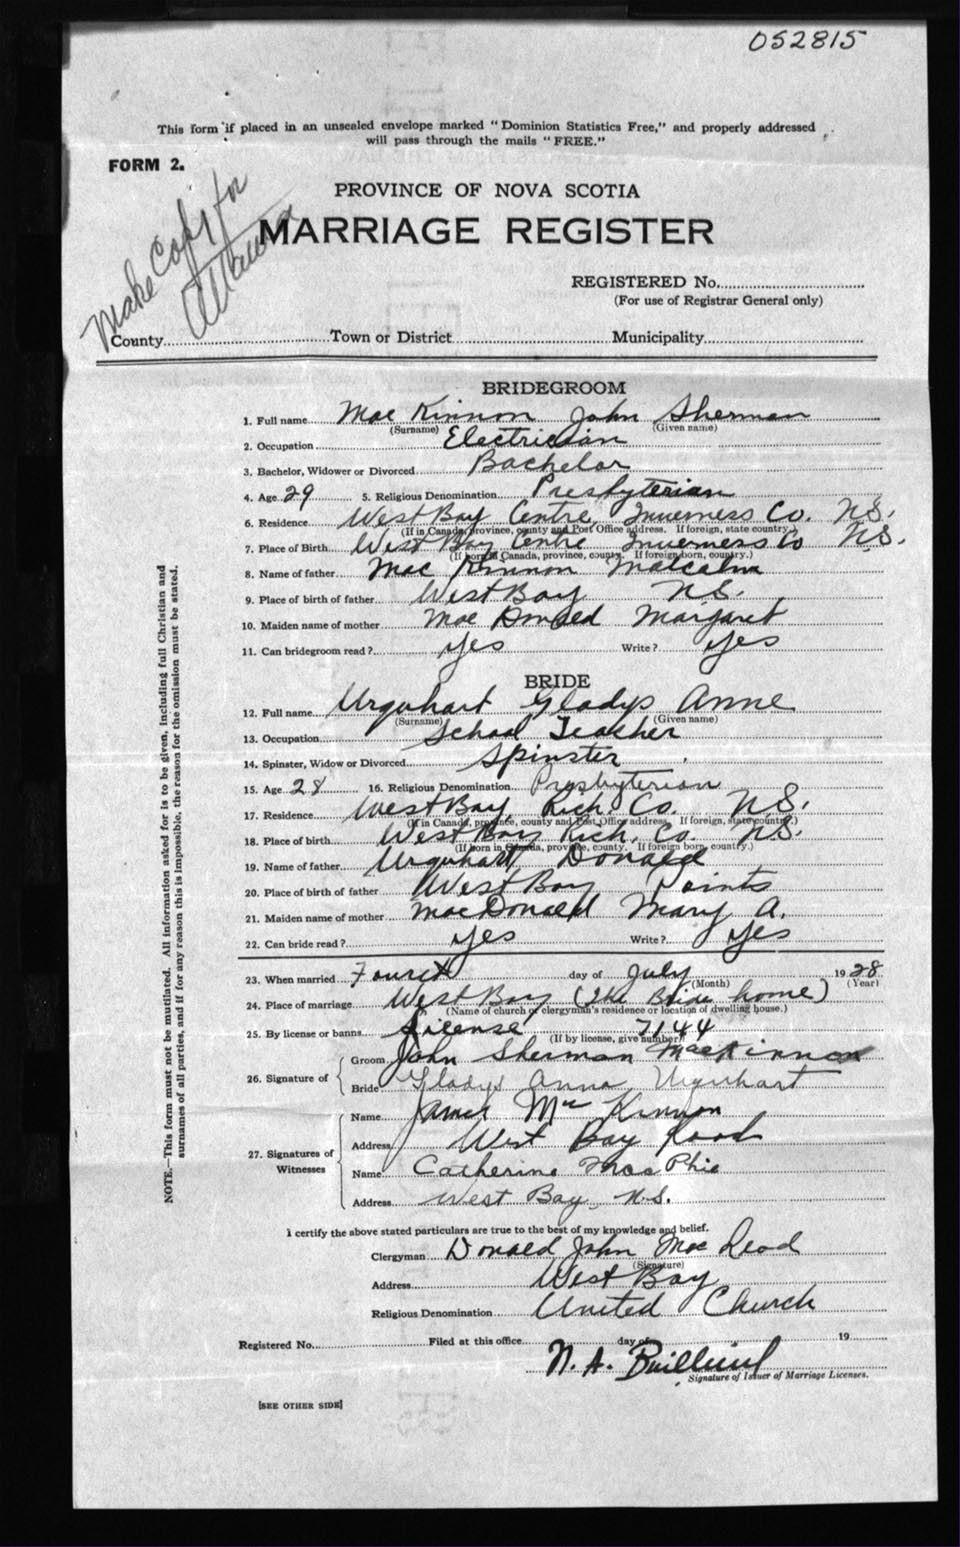 052815
This form if placed in an unsealed envelope marked " Dominion Statistics Free," and properly addressed
will pass through the mails " FREE."
FORM 2.
Make Copy for
Ottawa
PROVINCE OF NOVA SCOTIA
MARRIAGE REGISTER
REGISTERED No.
(For use of Registrar General only)
County Town or District Municipality
NOTE.—This form must not be mutilated. All information asked for is to be given, including full Christian and
surnames of all parties, and if for any reason this is impossible, the reason for the omission must be stated.
BRIDEGROOM
1. Full name Mac Kinnon John Sherman
(Surname) (Given name)
2. Occupation Electrician
3. Bachelor, Widower or Divorced Bachelor
4. Age 29 5. Religious Denomination Presbyterian
6. Residence West Bay Centre, Inverness Co. N.S.
(If in Canada, province, county and Post Office address. If foreign, state country.)
7. Place of Birth West Bay Centre Inverness Co N.S.
(If born in Canada, province, county. If foreign born, country.)
8. Name of father Mac Kinnon Malcolm
9. Place of birth of father West Bay N.S.
10. Maiden name of mother Mac Donald Margaret
11. Can bridegroom read? yes Write? yes
BRIDE
12. Full name Urquhart Gladys Anne
(Surname) (Given name)
13. Occupation School Teacher
14. Spinster, Widow or Divorced Spinster
15. Age 28 16. Religious Denomination Presbyterian
17. Residence West Bay, Rich. Co. N.S.
(If in Canada, province, county and Post Office address. If foreign, state country.)
18. Place of birth West Bay Rich. Co. N.S.
(If born in Canada, province, county. If foreign born, country.)
19. Name of father Urquhart Donald
20. Place of birth of father West Bay Points
21. Maiden name of mother MacDonald Mary A.
22. Can bride read? yes Write? yes
23. When married Fourth day of July 1928
(Month) (Year)
24. Place of marriage West Bay (The Bride home)
(Name of church or clergyman's residence or location of dwelling house.)
25. By license or banns License 7144
(If by license, give number)
26. Signature of Groom John Sherman MacKinnon
Bride Gladys Anna Urquhart
27. Signatures of Witnesses
Name James Mc Kinnon
Address West Bay Road
Name Catherine Mac Phie
Address West Bay, N.S.
I certify the above stated particulars are true to the best of my knowledge and belief.
Clergyman Donald John Mac Leod
(Signature)
Address West Bay
Religious Denomination United Church
Registered No. Filed at this office day of 19
N. A.
Signature of Issuer of Marriage Licenses.
[SEE OTHER SIDE]